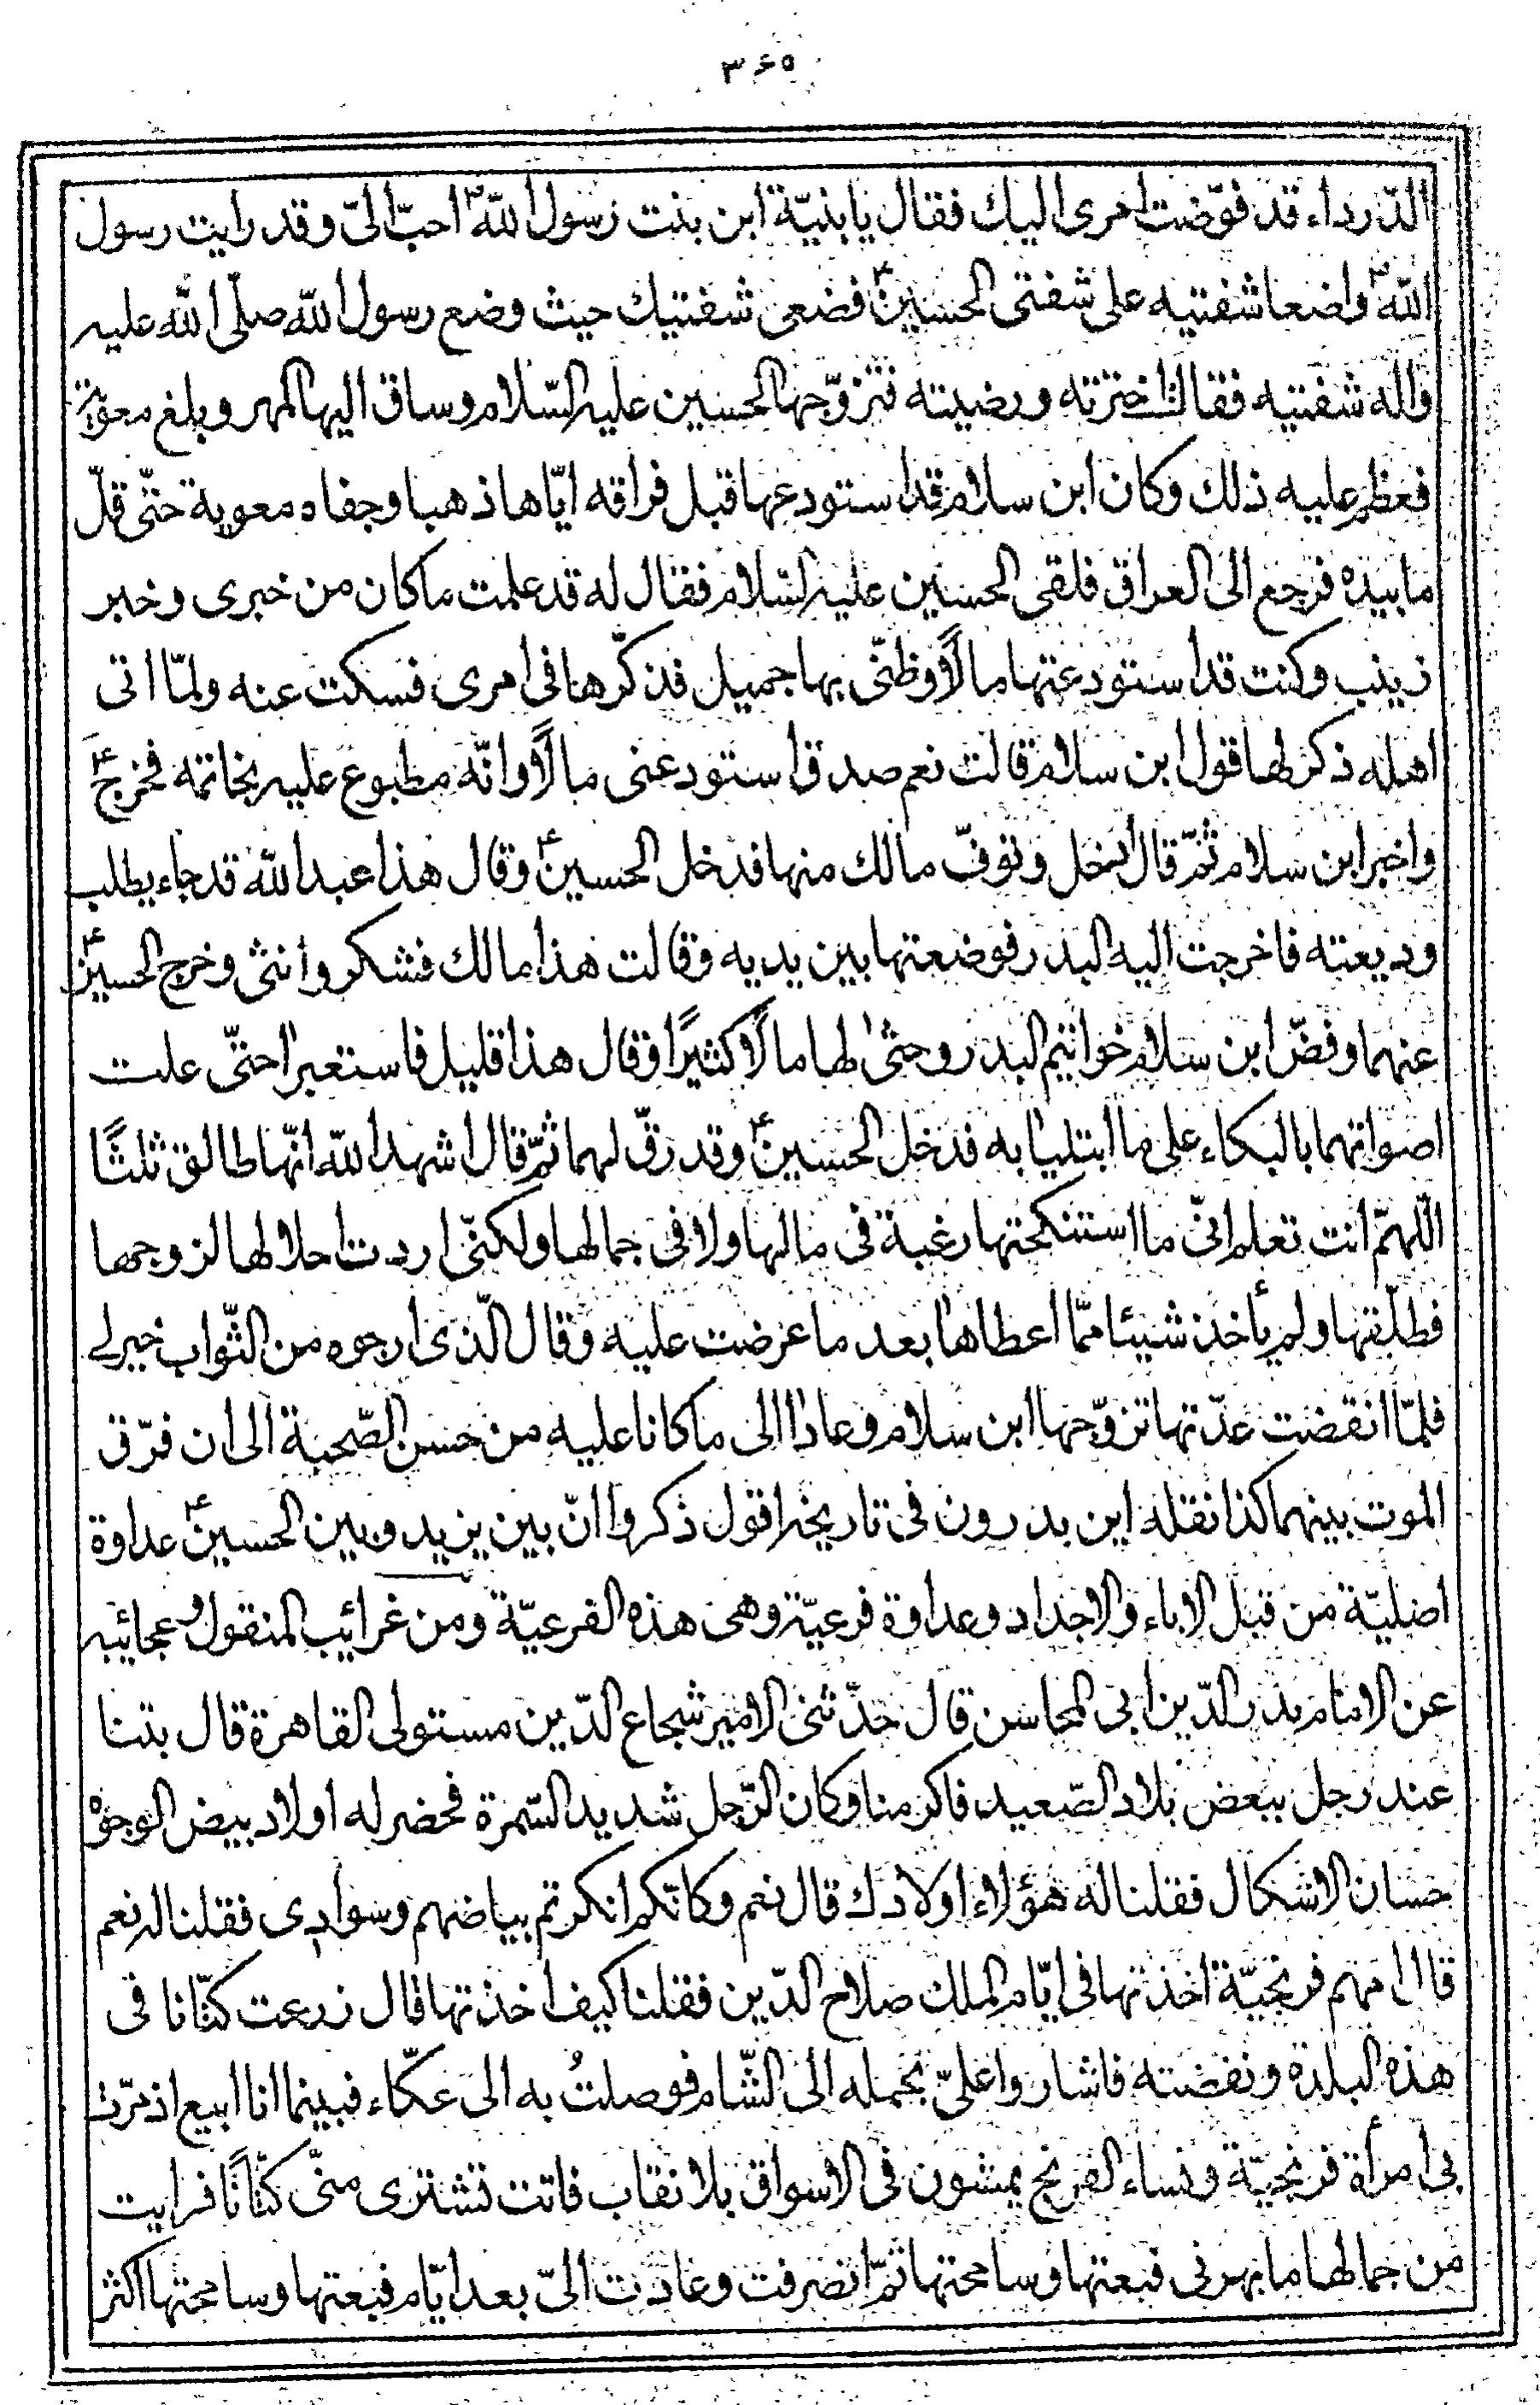 ٣۶۵
الدّرداء قد فوّضت امرى اليك فقال يا بنيّة ابن بنت رسول اللّه ص احبّ الىّ وقد رايت رسول
اللّه ص واضعا شفتيه على شفتى الحسين ع فضعى شفتيك حيث وضع رسول اللّه صلّى اللّه عليه
واله شفتيه فقالت اخترته ورضيته فتزوّجها الحسين عليه السّلام وساق اليها المهر وبلغ معوية
فعظم عليه ذلك وكان ابن سلام قد استودعها قبل فراقه ايّاها ذهبا وجفاه معوية حتّى قلّ
ما بيده فرجع الى العراق فلقى الحسين عليه السّلام فقال له قد علمت ما كان من خبرى وخبر
زينب وكنت قد استودعتها مالًا وظنّى بها جميل فذكّرها فى امرى فسكت عنه ولمّا اتى
اهله ذكر لها قول ابن سلام قالت نعم صدق استودعنى مالًا وانّه مطبوع عليه بخاتمه فخرج ع
واخبر ابن سلام ثمّ قال ادخل وتوفّ مالك منها فدخل الحسين ع وقال هذا عبد اللّه قد جاء يطلب
وديعته فاخرجت اليه البدر فوضعتها بين يديه وقالت هذا مالك فشكر واثنى وخرج الحسين ع
عنهما وفضّ ابن سلام خواتيم البدر وحثى لها مالًا كثيرًا وقال هذا قليل فاستعبرا حتّى علت
اصواتهما بالبكاء على ما ابتليا به فدخل الحسين ع وقد رقّ لهما ثمّ قال اشهد اللّه انّها طالق ثلثًا
اللّهمّ انت تعلم انّى ما استنكحتها رغبة فى مالها ولا فى جمالها ولكنّى اردت احلالها لزوجها
فطلّقها ولم يأخذ شيئا ممّا اعطاها بعد ما عرضت عليه وقال الّذى ارجوه من الثّواب خير لى
فلمّا انقضت عدّتها تزوّجها ابن سلام وعادا الى ما كانا عليه من حسن الصّحبة الى ان فرّق
الموت بينهما كذا نقله ابن بدرون فى تاريخه اقول ذكروا انّ بين يزيد وبين الحسين ع عداوة
اصليّة من قبل الاباء والاجداد وعداوة فرعيّة وهى هذه الفرعيّة ومن غرائب المنقول وعجائبه
عن الامام بدر الدّين ابى المحاسن قال حدّثنى الامير شجاع الدّين مستولى القاهرة قال بتنا
عند رجل ببعض بلاد الصّعيد فاكرمنا وكان الرّجل شديد السّمرة فحضر له اولاد بيض الوجوه
حسان الاشكال فقلنا له هؤلاء اولادك قال نعم وكانّكم انكرتم بياضهم وسوادى فقلنا له نعم
قال امهم فرنجيّة اخذتها فى ايّام الملك صلاح الدّين فقلنا كيف اخذتها قال زرعت كتّانا فى
هذه البلدة ونفضته فاشاروا علىّ بحمله الى الشّام فوصلتُ به الى عكّاء فبينما انا ابيع اذ مرّت
بى امرأة فرنجيّة ونساء الفرنج يمشون فى الاسواق بلا نقاب فاتت تشترى منّى كتّانًا فرايت
من جمالها ما بهرنى فبعتها وسامحتها ثمّ انصرفت وعادت الىّ بعد ايّام فبعتها وسامحتها اكثر